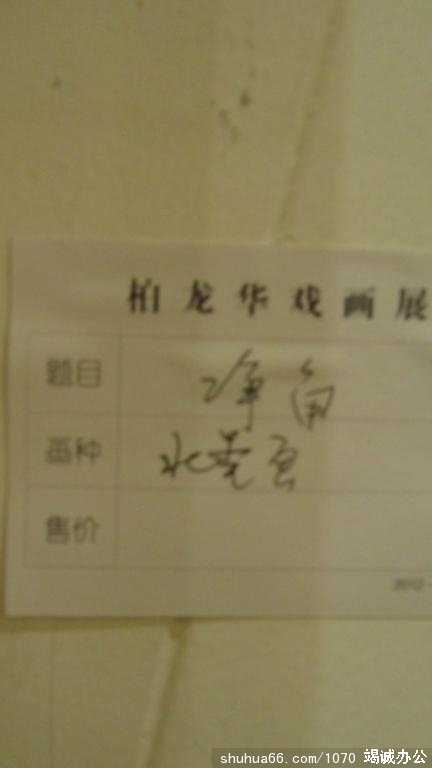 柏龙华戏画展
题目 净角
画种 水墨画
售价
2012
shuhua66.com/1070 竭诚办公